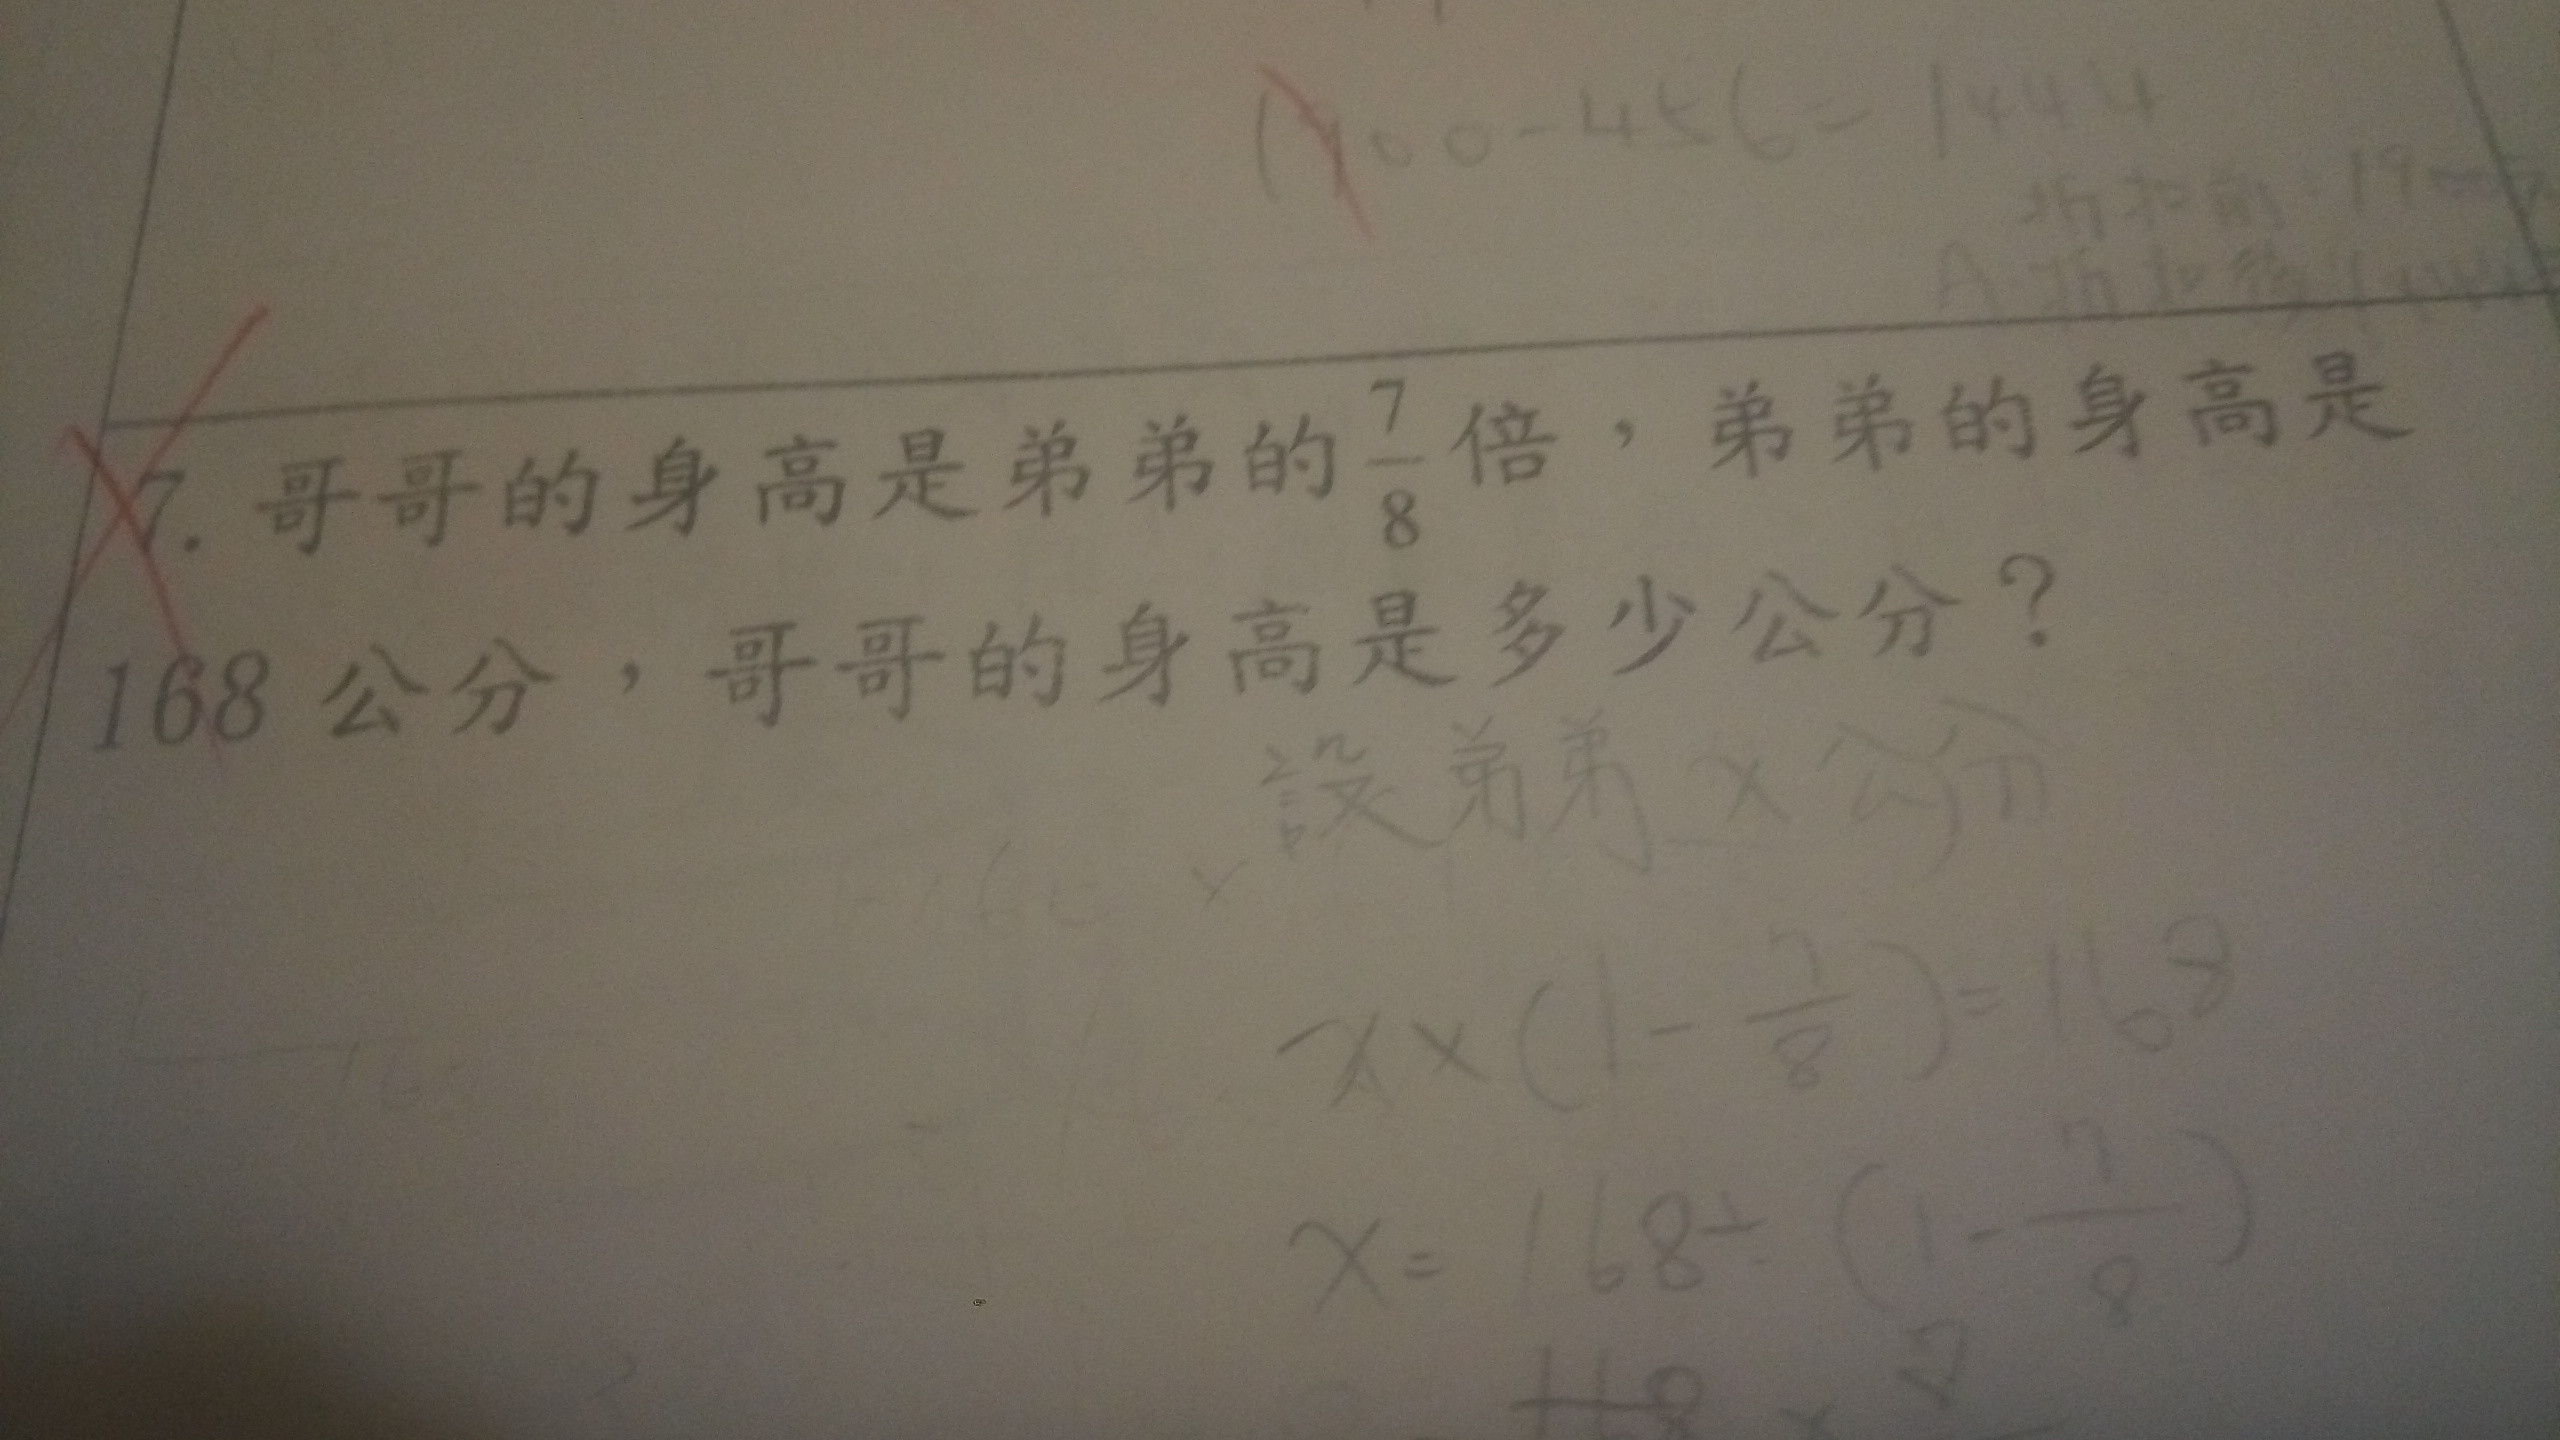 1900-456=1444
折扣前:19
A 折扣後
7. 哥哥的身高是弟弟的7/8倍，弟弟的身高是
168 公分，哥哥的身高是多少公分？
設弟弟 x 公分
x×(1-7/8)=168
x=168÷(1-7/8)
168×7